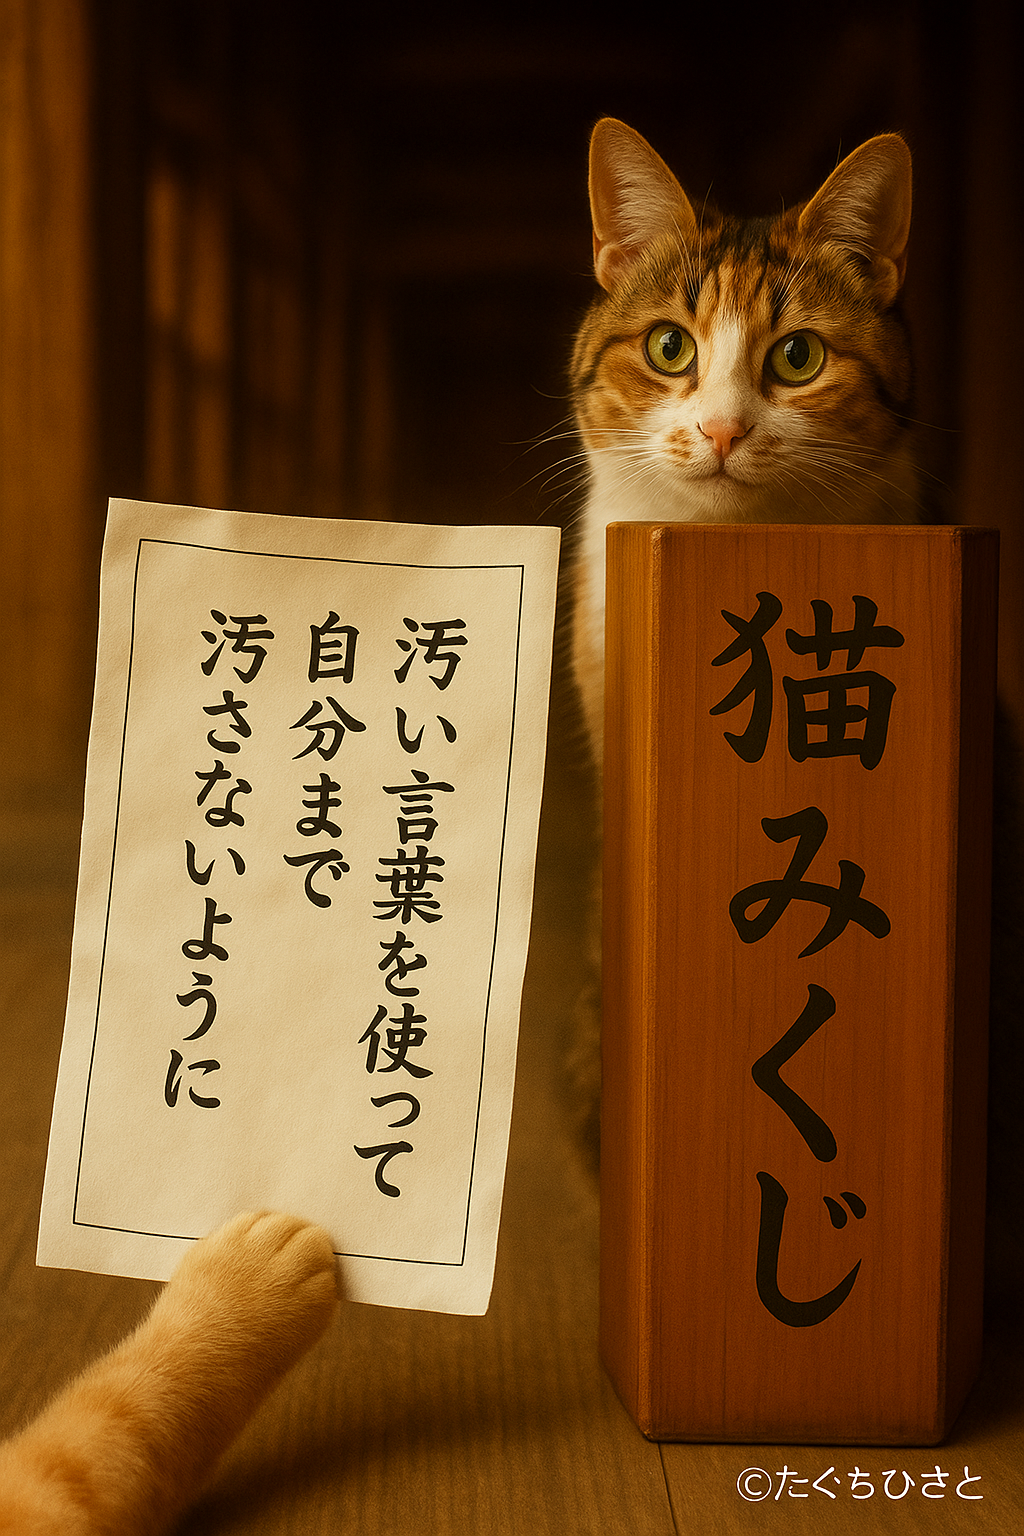 汚い言葉を使って
自分まで
汚さないように
猫みくじ
©たぐちひさと